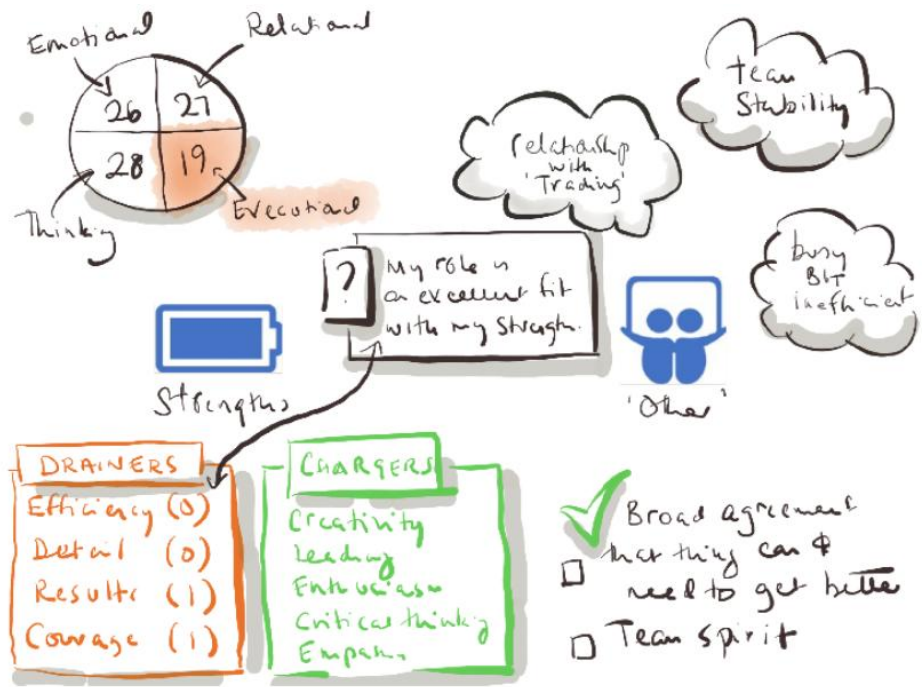 Emotional
Relational
26
27
28
19
Thinking
Executional
relationship
with
'Trading'
team
Stability
busy
BUT
inefficient
?
My role is
an excellent fit
with my Strength.
Strengths
'Other'
DRAINERS
Efficiency (0)
Detail (0)
Results (1)
Courage (1)
CHARGERS
Creativity
Leading
Enthusiasm
Critical thinking
Empathy
Broad agreement
that thing can &
need to get better
Team spirit